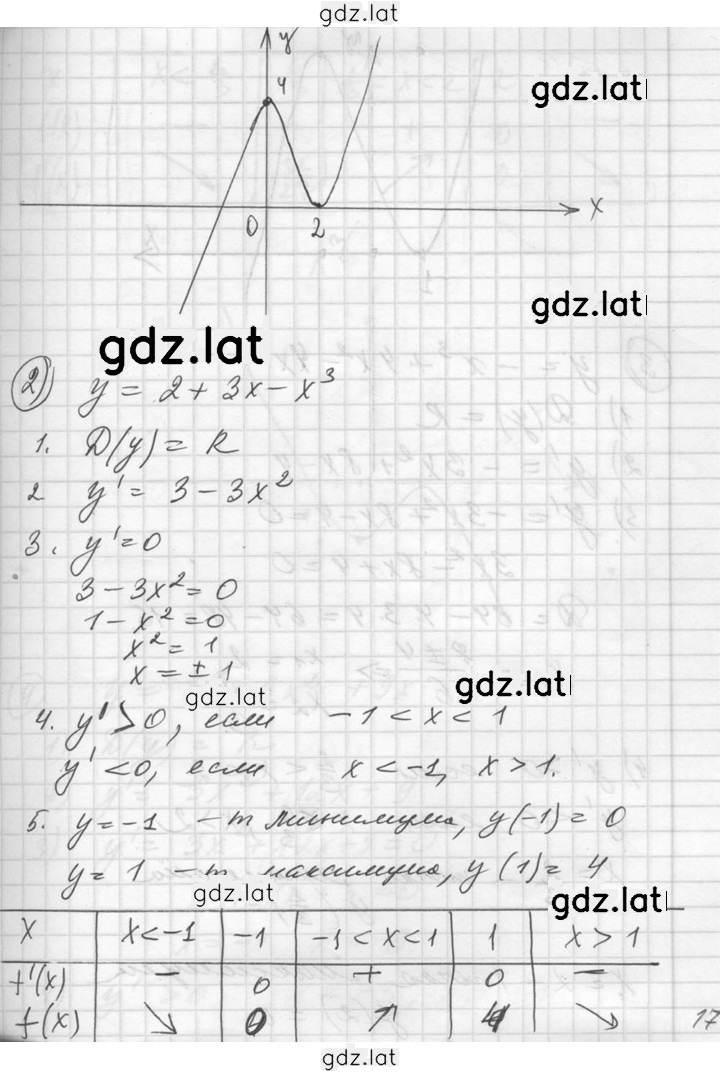 gdz.lat
y
4
gdz.lat
0 2 x
gdz.lat
gdz.lat
2) y = 2 + 3x - x³
1. D(y) = R
2 y' = 3 - 3x²
3. y' = 0
3 - 3x² = 0
1 - x² = 0
x² = 1
x = ± 1
gdz.lat
gdz.lat
4. y' > 0, если -1 < x < 1
y' < 0, если x < -1, x > 1.
5. y = -1 - т минимума, y(-1) = 0
y = 1 - т максимума, y(1) = 4
gdz.lat
gdz.lat
x x < -1 -1 -1 < x < 1 1 x > 1
f'(x) - 0 + 0 -
f(x) ↘ 0 ↗ 4 ↘
17
gdz.lat